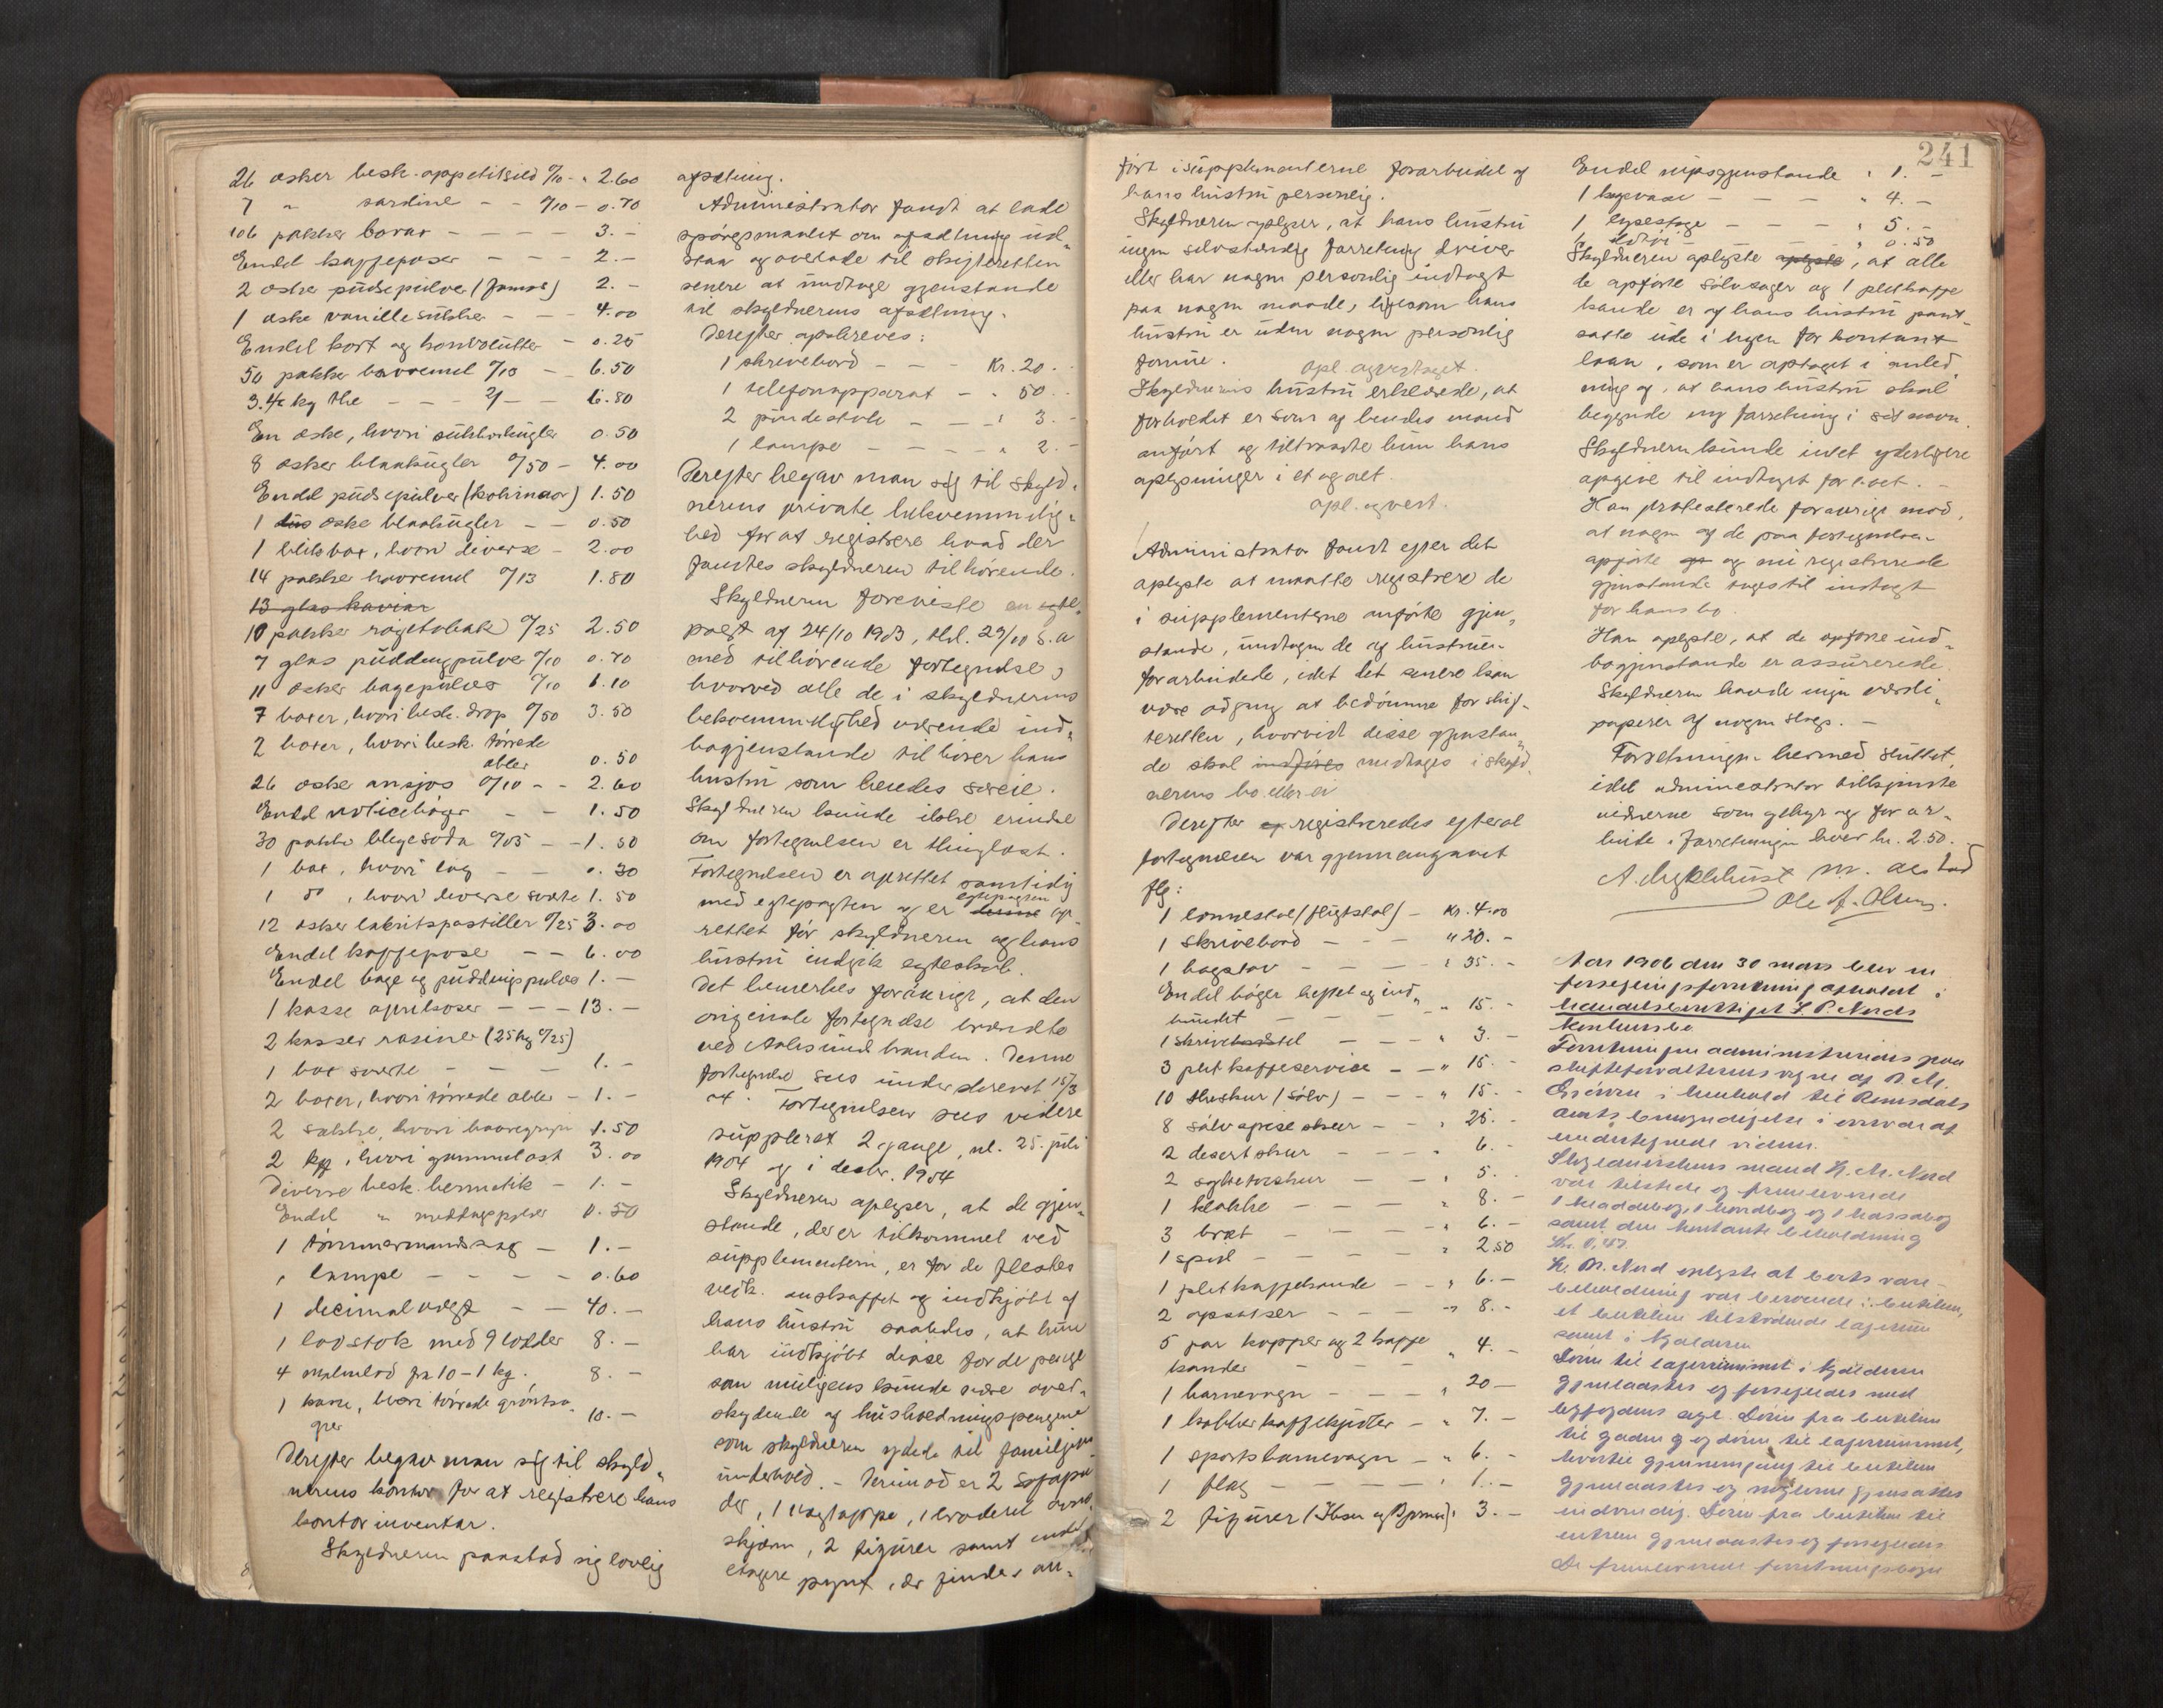 26 æsker besk. appetitsild 0/10 - " 2.60
7 " sardine - - 0/10 - 0.70
106 pakker borax - - - - 3.-
Endel kaffeposer - - - 2.-
2 æsker pudsepulver 2.-
1 æske vanillesukker - - - 4.00
Endel kort og konvolutter - 0.25
50 pakker havremel 0/13 - - 6.50
3.4/2 kg the - - - 2/- - - 6.80
En æske, hvori sukkerkugler 0.50
8 æsker blaakugler 0/50 - 4.00
Endel pudsepulver (Kohinoor) 1.50
1 æske blaakugler - - 0.50
1 blikbox, hvori diverse - 2.00
14 pakker havremel 0/13 1.80
13 glas kaviar
10 pakker røgetobak 0/25 2.50
7 glas puddingpulver 0/10 0.70
11 æsker bagepulver 0/10 1.10
7 boxer, hvori besk. drop 0/50 3.50
2 boxer, hvori besk. tørrede
æbler 0.50
26 æsker ansjos 0/10 - - 2.60
Endel noticebøger - - 1.50
30 pakker blegesoda 0/05 - - 1.50
1 box, hvori løg - - 0.30
1 do, hvori diverse sværte 1.50
12 æsker lakritspastiller 0/25 3.00
Endel kaffepose - - 6.00
Endel bage og puddingspulver 1.-
1 kasse aprikoser - - - 13.-
2 kasser rasiner (25 kg 0/25)
1 box sværte - - - 1.-
2 boxer, hvori tørrede æbler - 1.-
2 sække, hvori havregryn 1.50
2 hvori gammelost 3.00
Diverse besk. hermetik - 1.-
Endel " 0.50
1 tømmermandssag - 1.-
1 lampe - - - - 0.60
1 decimalvægt - - 40.-
1 lodstok med 9 lodder 8.-
4 fra 10-1 kg. 8.-
1 kasse, hvori tørrede grøntsa-
ger 10.-
Derefter begav man sig til skyld-
nerens kontor for at registrere hans
kontorinventar.
Skyldneren paastod sig lovlig
afsætning.
Administrator fandt at lade
spørgsmaalet om afsætning ud-
staa og overlade til skifteretten
senere at undtage gjenstande
til skyldnerens afsætning.
Derefter opskreves:
1 skrivebord - - - Kr. 20.-
1 telefonapparat - " 50.-
2 pindestole - - - " 3.-
1 lampe - - - - " 2.-
Derefter begav man sig til skyld-
nerens private bekvemmelig-
hed for at registrere hvad der
fandtes skyldneren tilhørende.
Skyldneren foreviste en egte-
pagt af 24/10 1903, thl. 29/10 s.a
med tilhørende fortegnelse,
hvorved alle de i skyldnerens
bekvemmelighed værende ind-
bogjenstande tilhører hans
hustru som hendes særeie.
Skyldneren kunde ikke erindre
om fortegnelsen er thinglæst.
Fortegnelsen er oprettet samtidig
med egtepagten og er egtepagten op-
rettet før skyldneren og hans
hustru indgik egteskab.
Det bemerkes forøvrigt, at den
originale fortegnelse brændte
ved Aalesund branden. Denne
fortegnelse sees underskrevet 15/3
04. Fortegnelsen sees videre
suppleret 2 gange, nl. 25. juli
1904 og i decbr. 1904
Skyldneren oplyser, at de gjen-
stande, der er tilkommet ved
supplementerne, er for de flestes
vedk. anskaffet og indkjøbt af
hans hustru saaledes, at hun
har indkjøbt disse for de penge
som muligens kunde være over-
skydende af husholdningspengene
som skyldneren ydede til familjens
underhold. - Derimod er 2
1 1 broderet ovns-
skjærm, 2 figurer samt endel
etagere pynt, der findes an-
ført i supplementerne forarbeidet af
hans hustru personlig.
Skyldneren oplyser, at hans hustru
ingen selvstændig forretning driver
eller har nogen personlig indtægt
paa nogen maade, ligesom hans
hustru er uden nogen personlig
formue.
opl. og vedtaget.
Skyldnerens hustru erklærede, at
forholdet er som af hendes mand
anført og tiltraadte hun hans
oplysninger i et og alt.
opl. og vedt.
Administrator fandt efter det
oplyste at maatte registrere de
i supplementerne anførte gjen-
stande, undtagen de af hustruen
forarbeidede, idet det senere kan
være adgang at bedømme for skif-
teretten, hvorvidt disse gjenstan-
de skal indføres undtages i skyld-
nerens bo eller ei
Derefter registreredes efterat
fortegnelsen var gjennemgaaet
flg:
1 lænestol (fløjtstol) - Kr. 4.00
1 skrivebord - - - " 20.-
1 bogskav - - - - " 35.-
Endel bøger heftet og ind-
bundet - - - - " 15.-
- - - " 3.-
3 plet kaffeservice - - " 15.-
10 theskeer (sølv) - - - " 15.-
8 sølv spiseskeer - - " 25.-
2 desertskeer - - - " 6.-
2 syltetøiskeer - - " 5.-
1 klokke - - - - " 8.-
3 bræt - - - - " 6.-
1 speil - - - - " 2.50
1 plet kaffekande - - " 6.-
2 opsatser - - - - " 8.-
5 par kopper og 2 kaffe
kander - - - - " 4.-
1 barnevogn - - - " 20.-
1 kobberkaffekjedler - " 7.-
1 sportsbarnevogn - " 6.-
1 flag - - - - - " 1.-
2 figurer (Ibsen og Bjørnson) " 3.-
241
Endel nipsgjenstande " 1.-
1 - - - " 4.-
1 lysestage - - - " 5.-
1 - - " 0.50
Skyldneren oplyste oplyste, at alle
de opførte sølvsager og 1 pletkaffe
kande er af hans hustru pant-
satte ude i byen for kontant
laan, som er optaget i anled-
ning af, at hans hustru skal
begynde ny forretning i sit navn.
Skyldneren kunde intet yderligere
opgive til indtægt for boet. -
Han protesterede forøvrigt mod,
at nogen af de paa fortegnelsen
opførte og nu registrerede
gjenstande toges til indtægt
for hans bo.
Han oplyste, at de opførte ind-
bogjenstande er assurerede.
Skyldneren havde ingen værdi-
papirer af nogen slags. -
Forretningen hermed sluttet,
idet administrator tilkjendte
vidnerne som gebyr og for ar-
beide i forretningen hver kr. 2.50.
Ole A. Olsen.
Aar 1906 den 30 mars blev en
forseglingsforretning afholdt i
handelsberettiget Nords
konkursbo
Forretningen administreredes paa
skifteforvalterens vegne af
i henhold til Romsdals
amts bemyndigelse i overvær af
undertegnede vidner.
mand Nord
var tilstede og fremleverede
1 kladdebog, 1 hovdbog og 1 kassabog
samt den kontante beholdning
Nord oplyste at boets vare-
beholdning var beroende i butiken,
et butiken tilstødende lagerrum
samt i kjælderen.
Døren til lagerrummet i kjælderen
gjenlaastes og forsegledes med
byfogdens segl. Døren fra butiken
til gaden og døren til lagerrummet,
hvortil gjennemgang til butiken
gjenlaastes og nøglerne
indvendig. Døren fra butiken til
entreen gjenlaastes og forsegledes.
De fremleverede forretningsbøger